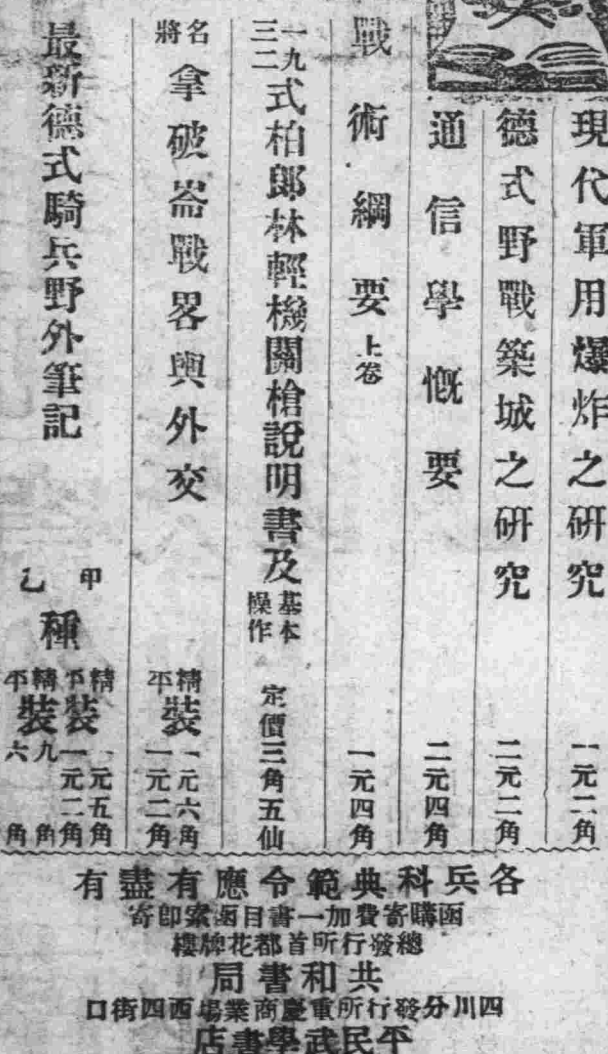 現代軍用爆炸之研究 一元二角
德式野戰築城之研究 二元二角
通信學慨要 二元四角
戰術綱要 上卷 一元四角
一九三二式柏郎林輕機關槍說明書及基本操作 定價三角五仙
名將拿破崙戰畧與外交 精裝一元六角 平裝一元二角
最新德式騎兵野外筆記 甲種 精裝一元五角 平裝一元二角 乙種 精裝九角 平裝六角
各兵科典範令應有盡有
函購寄費加一書目函索即寄
總發行所首都花牌樓
共和書局
四川分發行所重慶商業場西四街口
平民武學書店